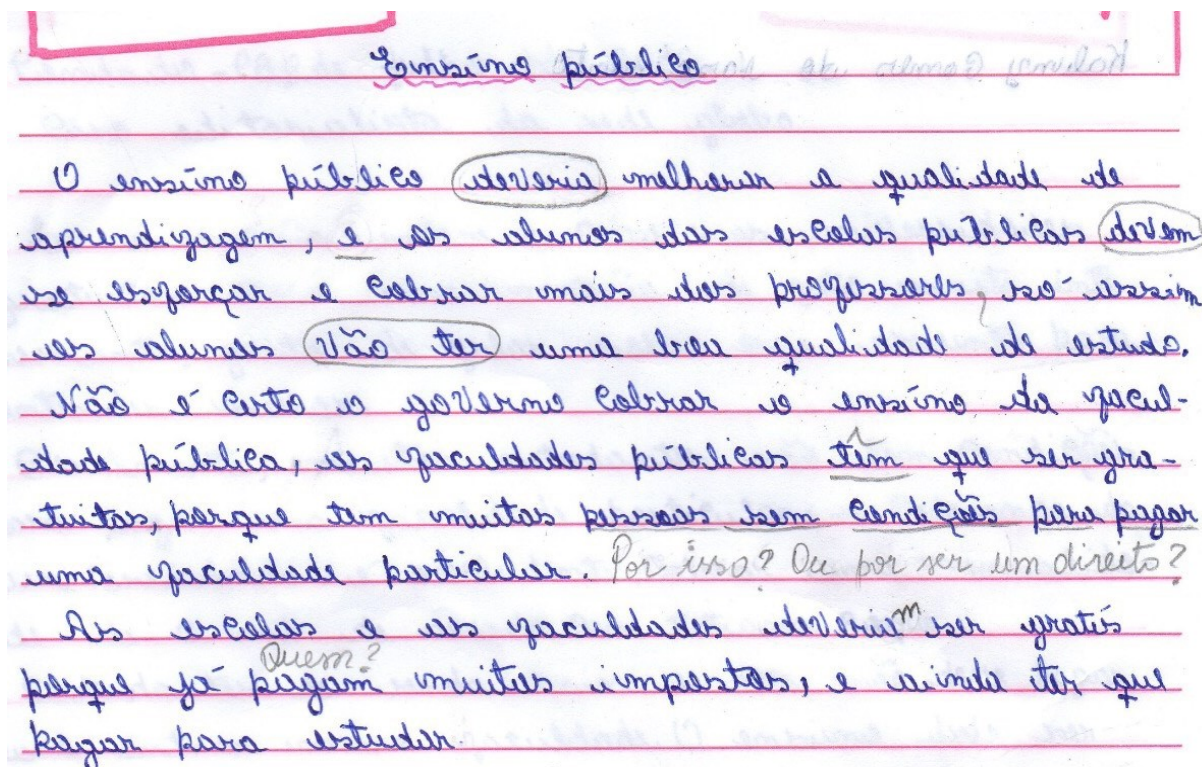 Ensino público
O ensino público deveria melhorar a qualidade de
aprendizagem, e os alunos das escolas públicas devem
se esforçar e cobrar mais dos professores, só assim
os alunos vão ter uma boa qualidade de estudo.
Não é certo o governo cobrar o ensino da facul-
dade pública, as faculdades públicas têm que ser gra-
tuitas, porque tem muitas pessoas sem condições para pagar
uma faculdade particular. Por isso? Ou por ser um direito?
As escolas e as faculdades deveriam ser gratís
Quem?
porque já pagam muitos impostos, e ainda ter que
pagar para estudar.